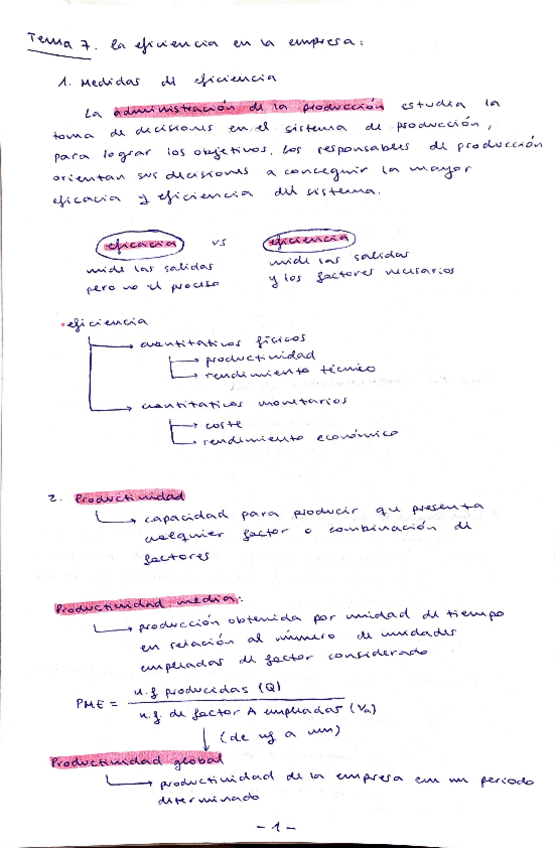 Tema 7. La eficiencia en la empresa:
1. Medidas de eficiencia
La administración de la producción estudia la
toma de decisiones en el sistema de producción,
para lograr los objetivos. Los responsables de producción
orientan sus decisiones a conceguir la mayor
eficacia y eficiencia del sistema.
eficacia vs eficiencia
mide las salidas pero no el proceso
mide las salidas y los factores necesarios
eficiencia
cuantitativos físicos
productividad
rendimiento técnico
cuantitativos monetarios
coste
rendimiento económico
2. Productividad
capacidad para producir que presenta
cualquier factor o combinación de
factores
Productividad media:
producción obtenida por unidad de tiempo
en relación al número de unidades
empleadas de factor considerado
PME = u.f producidas (Q)
u.f. de factor A empleadas (Va)
(de uf a um)
Productividad global
productividad de la empresa em un periodo
determinado
- 1 -